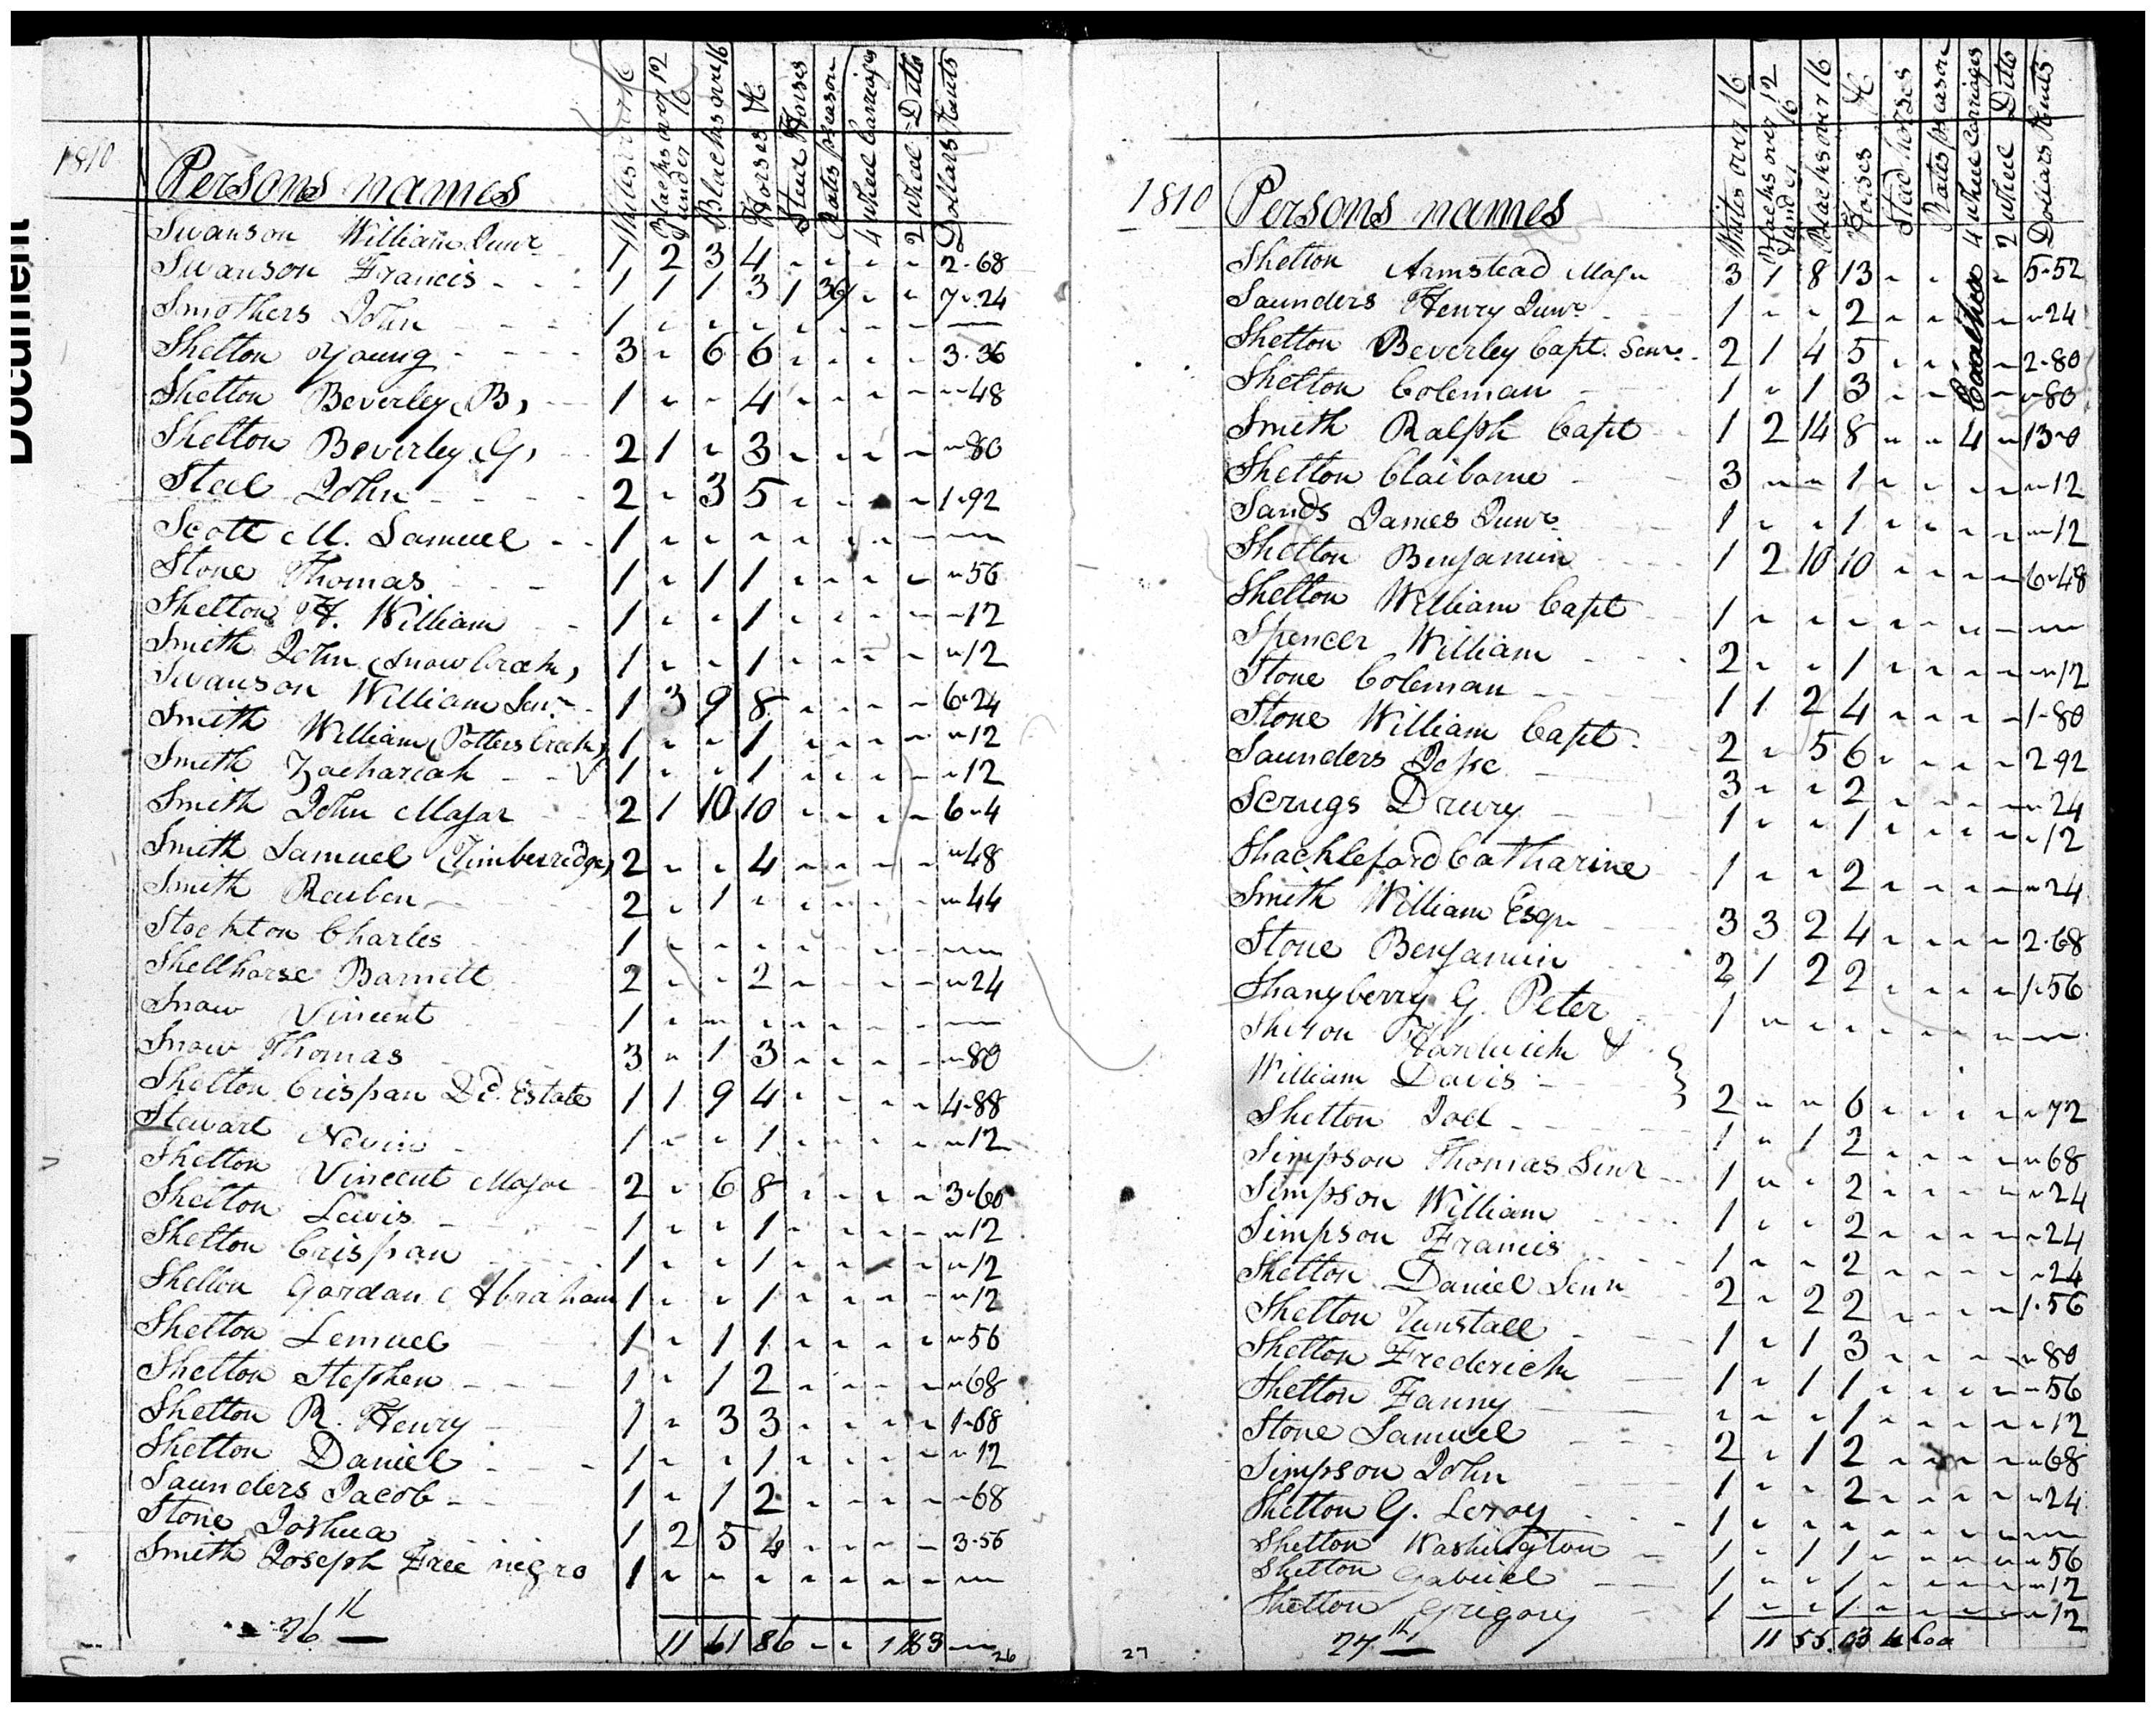 Document
1810
Persons names
Whites over 16
Blacks over 12 & under 16
Blacks over 16
Horses &c
Stud Horses
Rates pr season
4 wheel Carriages
2 wheel Ditto
Dollars & Cents
Swanson William Junr 1 2 3 4 " " " " 2.68
Swanson Francis 1 1 1 3 1 36/ " " 7.24
Smothers John 1 " " " " " " " —
Shelton Young 3 " 6 6 " " " " 3.36
Shelton Beverley (B) 1 " " 4 " " " " " 48
Shelton Beverley (G) 2 1 " 3 " " " " " 80
Steel John 2 " 3 5 " " " " 1.92
Scott M. Samuel 1 " " " " " " " —
Stone Thomas 1 " 1 1 " " " " " 56
Shelton H. William 1 " " 1 " " " " " 12
Smith John (Snow Creek) 1 " " 1 " " " " " 12
Swanson William Senr 1 3 9 8 " " " " 6.24
Smith William (Potters Creek) 1 " " 1 " " " " " 12
Smith Zachariah 1 " " 1 " " " " " 12
Smith John Major 2 1 10 10 " " " " 6 " 4
Smith Samuel (Timberridge) 2 " " 4 " " " " " 48
Smith Reuben 2 " 1 " " " " " " 44
Stockton Charles 1 " " " " " " " —
Shellhorse Barnett 2 " " 2 " " " " " 24
Snow Vincent 1 " " " " " " " —
Snow Thomas 3 " 1 3 " " " " " 80
Shelton Crispan Decd. Estate 1 1 9 4 " " " " 4.88
Stewart Nevin 1 " " 1 " " " " " 12
Shelton Vincent Major 2 " 6 8 " " " " 3.60
Shelton Lewis 1 " " 1 " " " " " 12
Shelton Crispan 1 " " 1 " " " " " 12
Shelton Gordan Abraham 1 " " 1 " " " " " 12
Shelton Lemuel 1 " 1 1 " " " " " 56
Shelton Stephen 1 " 1 2 " " " " " 68
Shelton R. Henry 1 " 3 3 " " " " 1.68
Shelton Daniel 1 " " 1 " " " " " 12
Saunders Jacob 1 " 1 2 " " " " " 68
Stone Joshua 1 2 5 4 " " " " 3.56
Smith Joseph Free negro 1 " " " " " " " —
26th
11 61 86
26
1810
Persons names
Whites over 16
Blacks over 12 & under 16
Blacks over 16
Horses &c
Stud horses
Rates pr season
4 wheel Carriages
2 wheel Ditto
Dollars & Cents
Shelton Armstead Major 3 1 8 13 " " " " 5.52
Saunders Henry Junr 1 " " 2 " " " " " 24
Shelton Beverley Capt. Senr 2 1 4 5 " " " " 2.80
Shelton Coleman 1 " 1 3 " " " " " 80
Smith Ralph Capt 1 2 14 8 " " 4 " 13 " 0
Coachee
Shelton Claiborne 3 " " 1 " " " " " 12
Sands James Junr 1 " " 1 " " " " " 12
Shelton Benjamin 1 2 10 10 " " " " 6.48
Shelton William Capt 1 " " " " " " " —
Spencer William 2 " " 1 " " " " " 12
Stone Coleman 1 1 2 4 " " " " 1.80
Stone William Capt. 2 " 5 6 " " " " 2.92
Saunders Jesse 3 " " 2 " " " " " 24
Scrugs Drury 1 " " 1 " " " " " 12
Shackleford Catharine 1 " " 2 " " " " " 24
Smith William Esqr 3 3 2 4 " " " " 2.68
Stone Benjamin 2 1 2 2 " " " " 1.56
Shangberry G. Peter 1 " " " " " " " —
Shelton Hardwich &
William Davis 2 " " 6 " " " " " 72
Shelton Joel 1 " 1 2 " " " " " 68
Simpson Thomas Senr 1 " " 2 " " " " " 24
Simpson William 1 " " 2 " " " " " 24
Simpson Francis 1 " " 2 " " " " " 24
Shelton Daniel Senr 2 " 2 2 " " " " 1.56
Shelton Tunstall 1 " 1 3 " " " " " 80
Shelton Frederick 1 " 1 1 " " " " " 56
Shelton Fanny " " " 1 " " " " " 12
Stone Samuel 2 " 1 2 " " " " " 68
Simpson John 1 " " 2 " " " " " 24
Shelton G. Leroy 1 " " " " " " " —
Shelton Washington 1 " 1 1 " " " " " 56
Shelton Gabriel 1 " " 1 " " " " " 12
Shelton Gregory 1 " " 1 " " " " " 12
27th
11 55
27